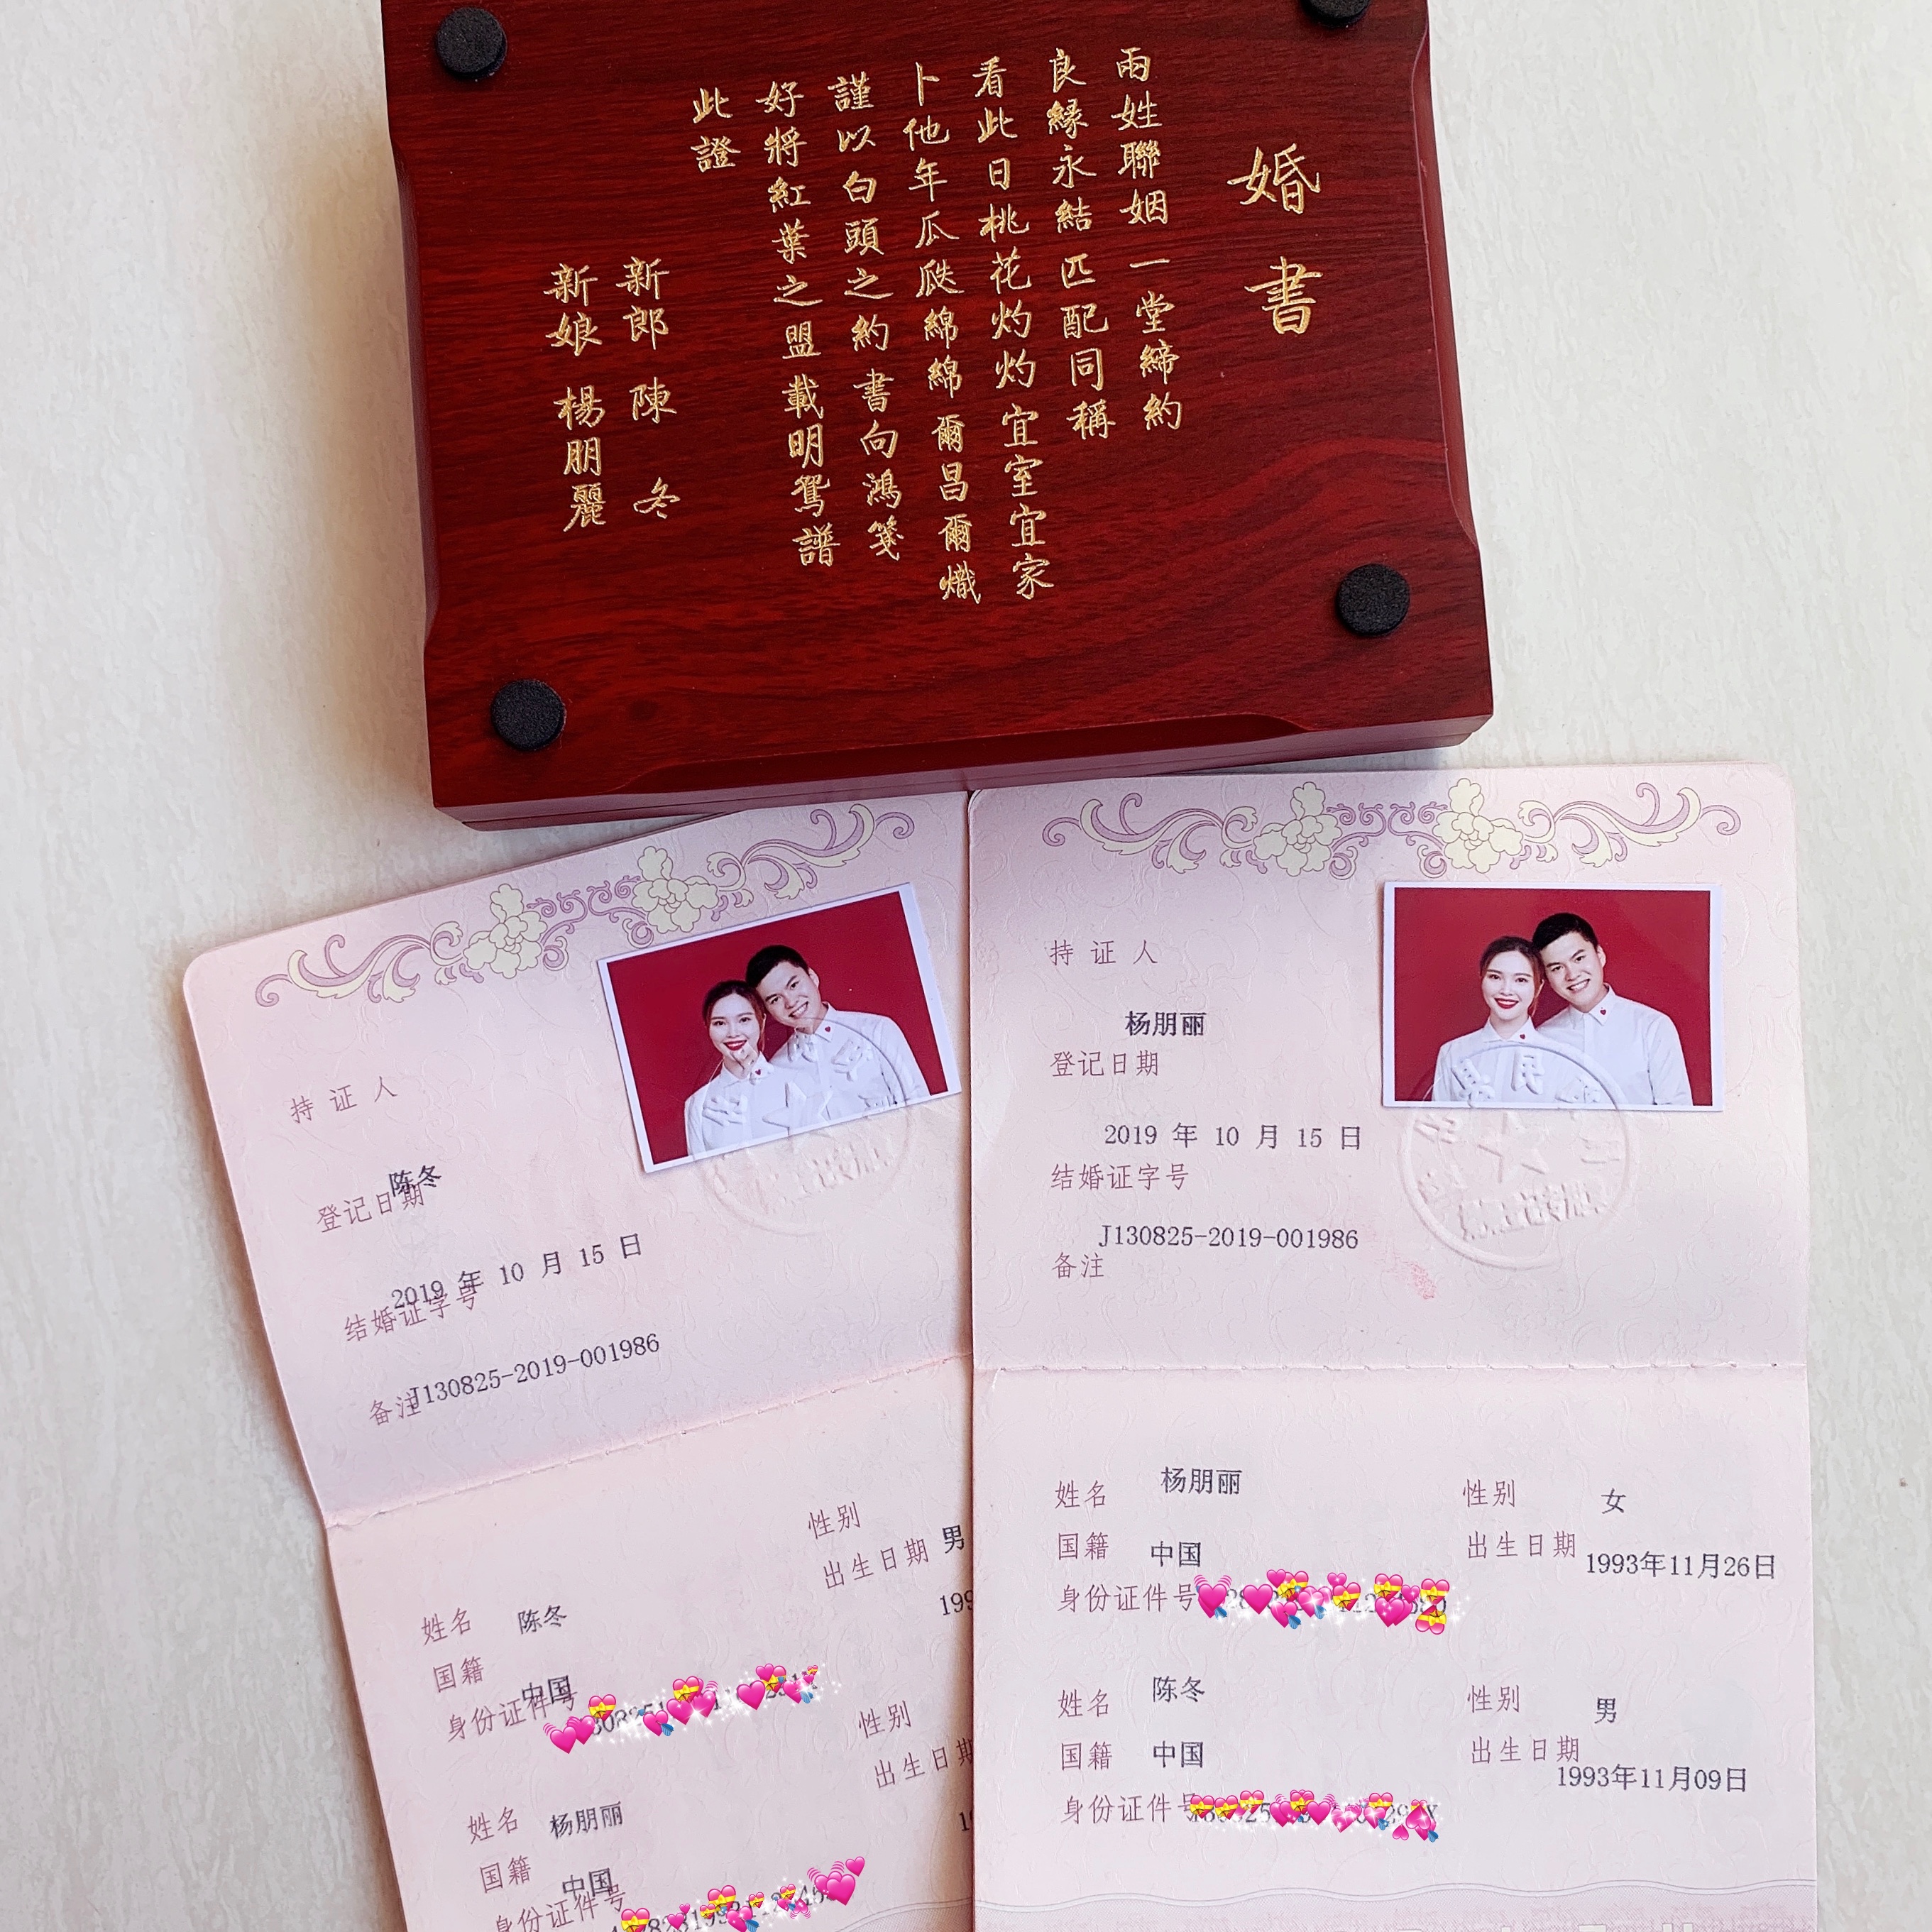 婚書
兩姓聯姻一堂締約
良緣永結匹配同稱
看此日桃花灼灼宜室宜家
卜他年瓜瓞綿綿爾昌爾熾
謹以白頭之約書向鴻箋
好將紅葉之盟載明鴛譜
此證
新郎 陳 冬
新娘 楊朋麗
持 证 人
陈冬
登记日期
2019 年 10 月 15 日
结婚证字号
J130825-2019-001986
备注
性别
男
出生日期
姓名 陈冬
国籍 中国
身份证件号
性别
出生日期
姓名 杨朋丽
国籍 中国
身份证件号
持 证 人
杨朋丽
登记日期
2019 年 10 月 15 日
结婚证字号
J130825-2019-001986
备注
姓名 杨朋丽 性别 女
国籍 中国 出生日期 1993年11月26日
身份证件号
姓名 陈冬 性别 男
国籍 中国 出生日期 1993年11月09日
身份证件号